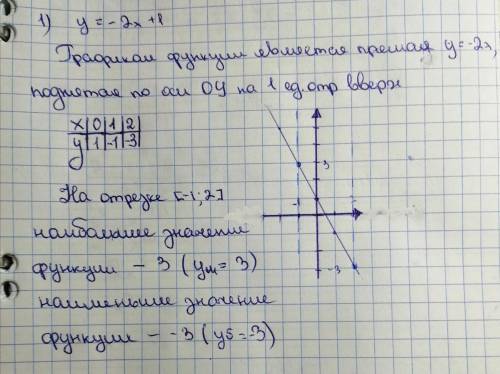 1) y = -2x+1
Графиком функции является прямая y=-2x,
поднятая по оси OY на 1 ед.отр вверх
x | 0 | 1 | 2
y | 1 | -1 | -3
3
-1
-3
На отрезке [-1; 2]
наибольшее значение
функции - 3 (yм = 3)
наименьшее значение
функции - -3 (y5=-3)